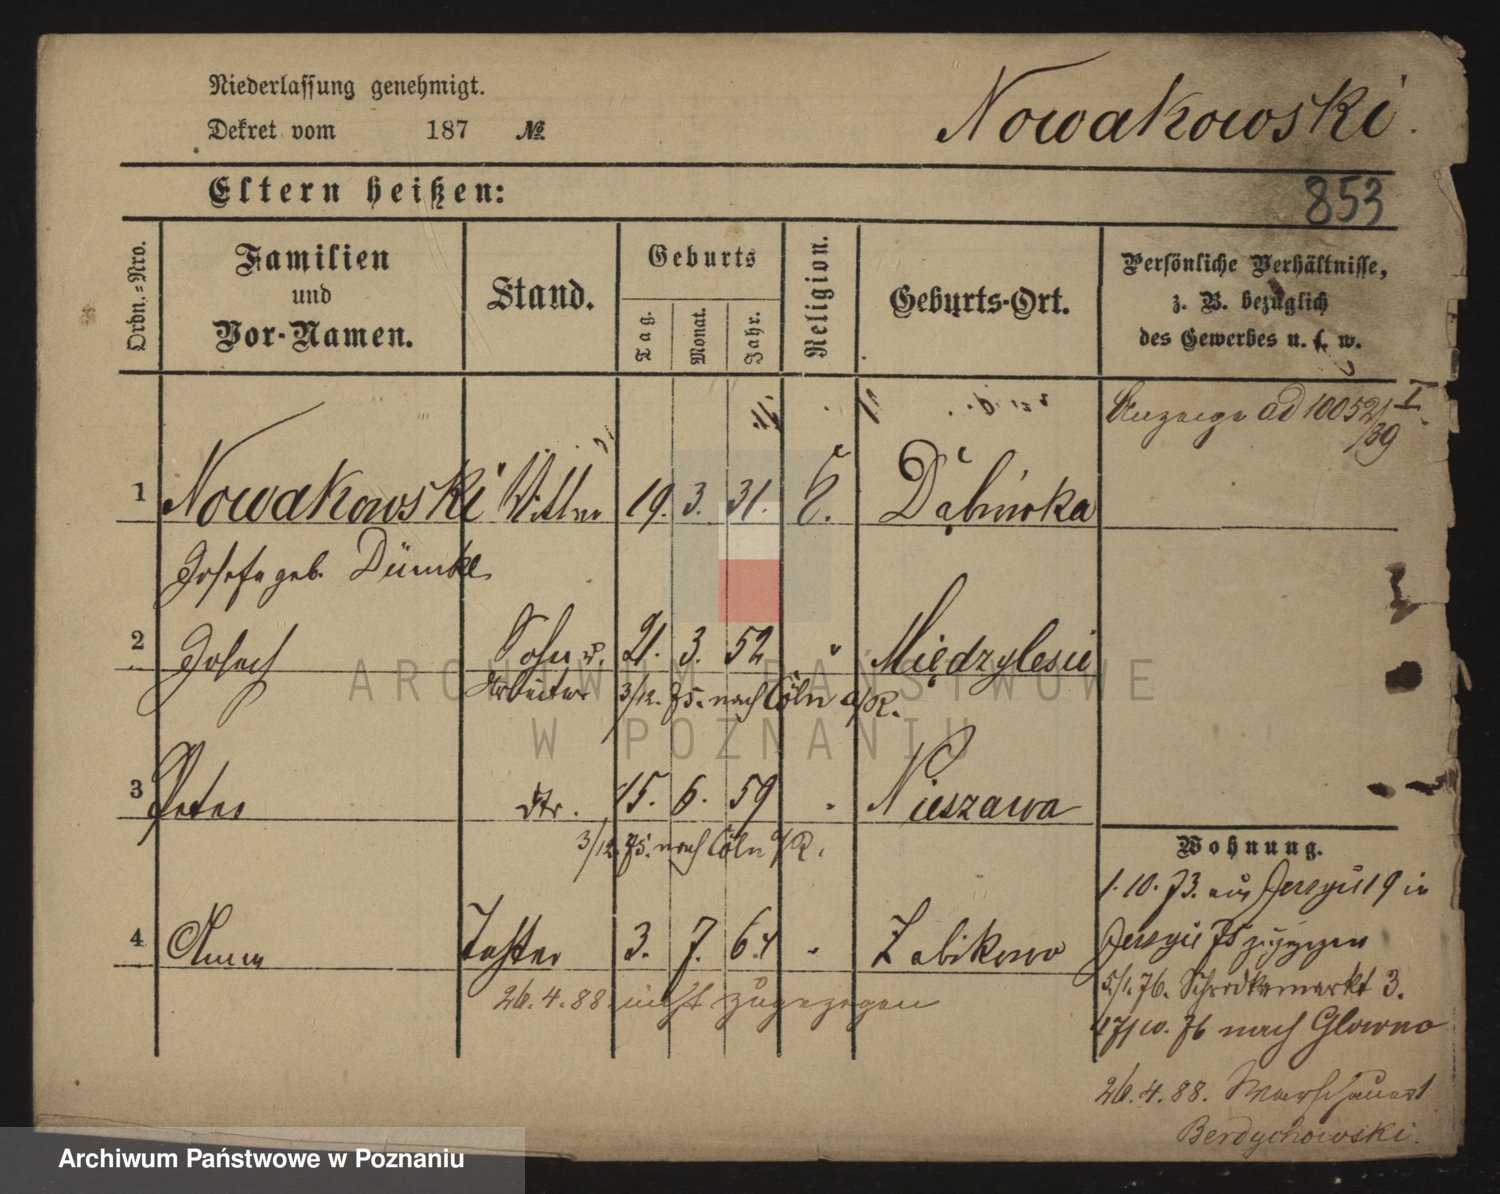 Niederlassung genehmigt.
Dekret vom 187 №
Nowakowski
Eltern heißen:
853
Ordn.-Nro.
Familien
und
Vor-Namen.
Stand.
Geburts
Tag.
Monat.
Jahr.
Religion.
Geburts-Ort.
Persönliche Verhältnisse,
z. B. bezüglich
des Gewerbes u. s. w.
Anzeige ad 10052/I
/39
1 Nowakowski 19. 3. 31. Dąbrówka
Josefa geb. Dümke
2 Josef Sohn u. 21. 3. 52 " Międzylesie
Arbeiter 3/12. 75. nach Cöln a/R.
3 Peter dtr. 15. 6. 59 " Nieszawa
3/12. 75. nach Cöln a/R.
Wohnung.
1. 10. 73. aus Jersyce 19 in
Jersyce 75 zugezogen
4 Anna Tochter 3. 7. 64 " Zabikowo
5/1. 76. Schrodkamarkt 3.
26.4.88. nicht zugezogen
10. 76 nach Glowno
26.4.88.
Berdychowski.
ARCHIWUM PAŃSTWOWE
W POZNANIU
Archiwum Państwowe w Poznaniu